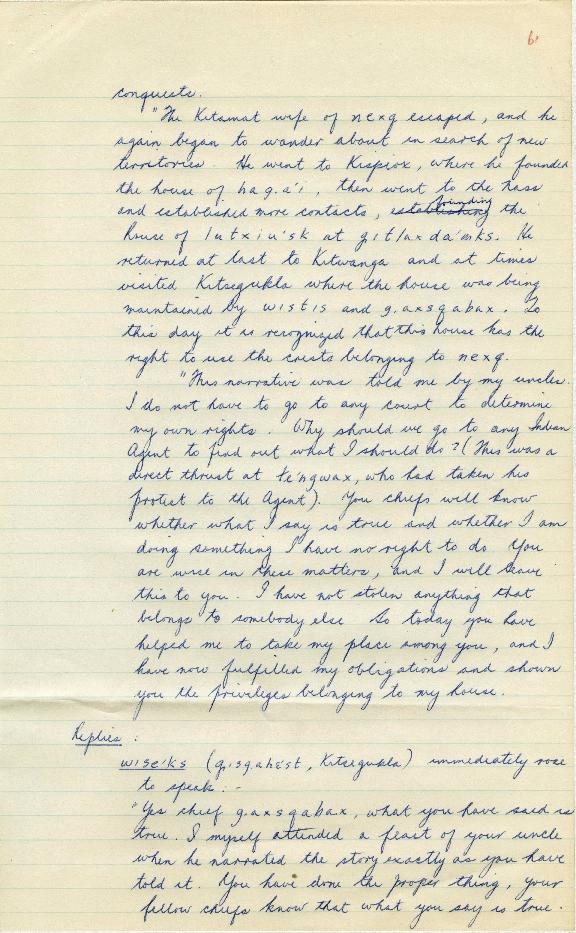 6.
conquests.
"The Kitamat wife of nexq escaped, and he
again began to wander about in search of new
territories. He went to Kispiox, where he founded
the house of hag.a'i, then went to the Nass
and established more contacts, establishing founding the
house of lutxiu'sk at gitlaxda'mks. He
returned at last to Kitwanga and at times
visited Kitsegukla where the house was being
maintained by wistis and g.axsgabax. To
this day it is recognized that this house has the
right to use the crests belonging to nexq.
"This narrative was told me by my uncles.
I do not have to go to any court to determine
my own rights. Why should we go to any Indian
Agent to find out what I should do? (This was a
direct thrust at te'ngwax, who had taken his
protest to the Agent). You chiefs will know
whether what I say is true and whether I am
doing something I have no right to do. You
are wise in these matters, and I will leave
this to you. I have not stolen anything that
belongs to somebody else So today you have
helped me to take my place among you, and I
have now fulfilled my obligations and shown
you the privileges belonging to my house.
Replies :
wise'ks (g.isgahɛ'st, Kitsegukla) immediately rose
to speak : -
"Yes chief g.axsgabax, what you have said is
true. I myself attended a feast of your uncle
when he narrated the story exactly as you have
told it. You have done the proper thing, your
fellow chiefs know that what you say is true.